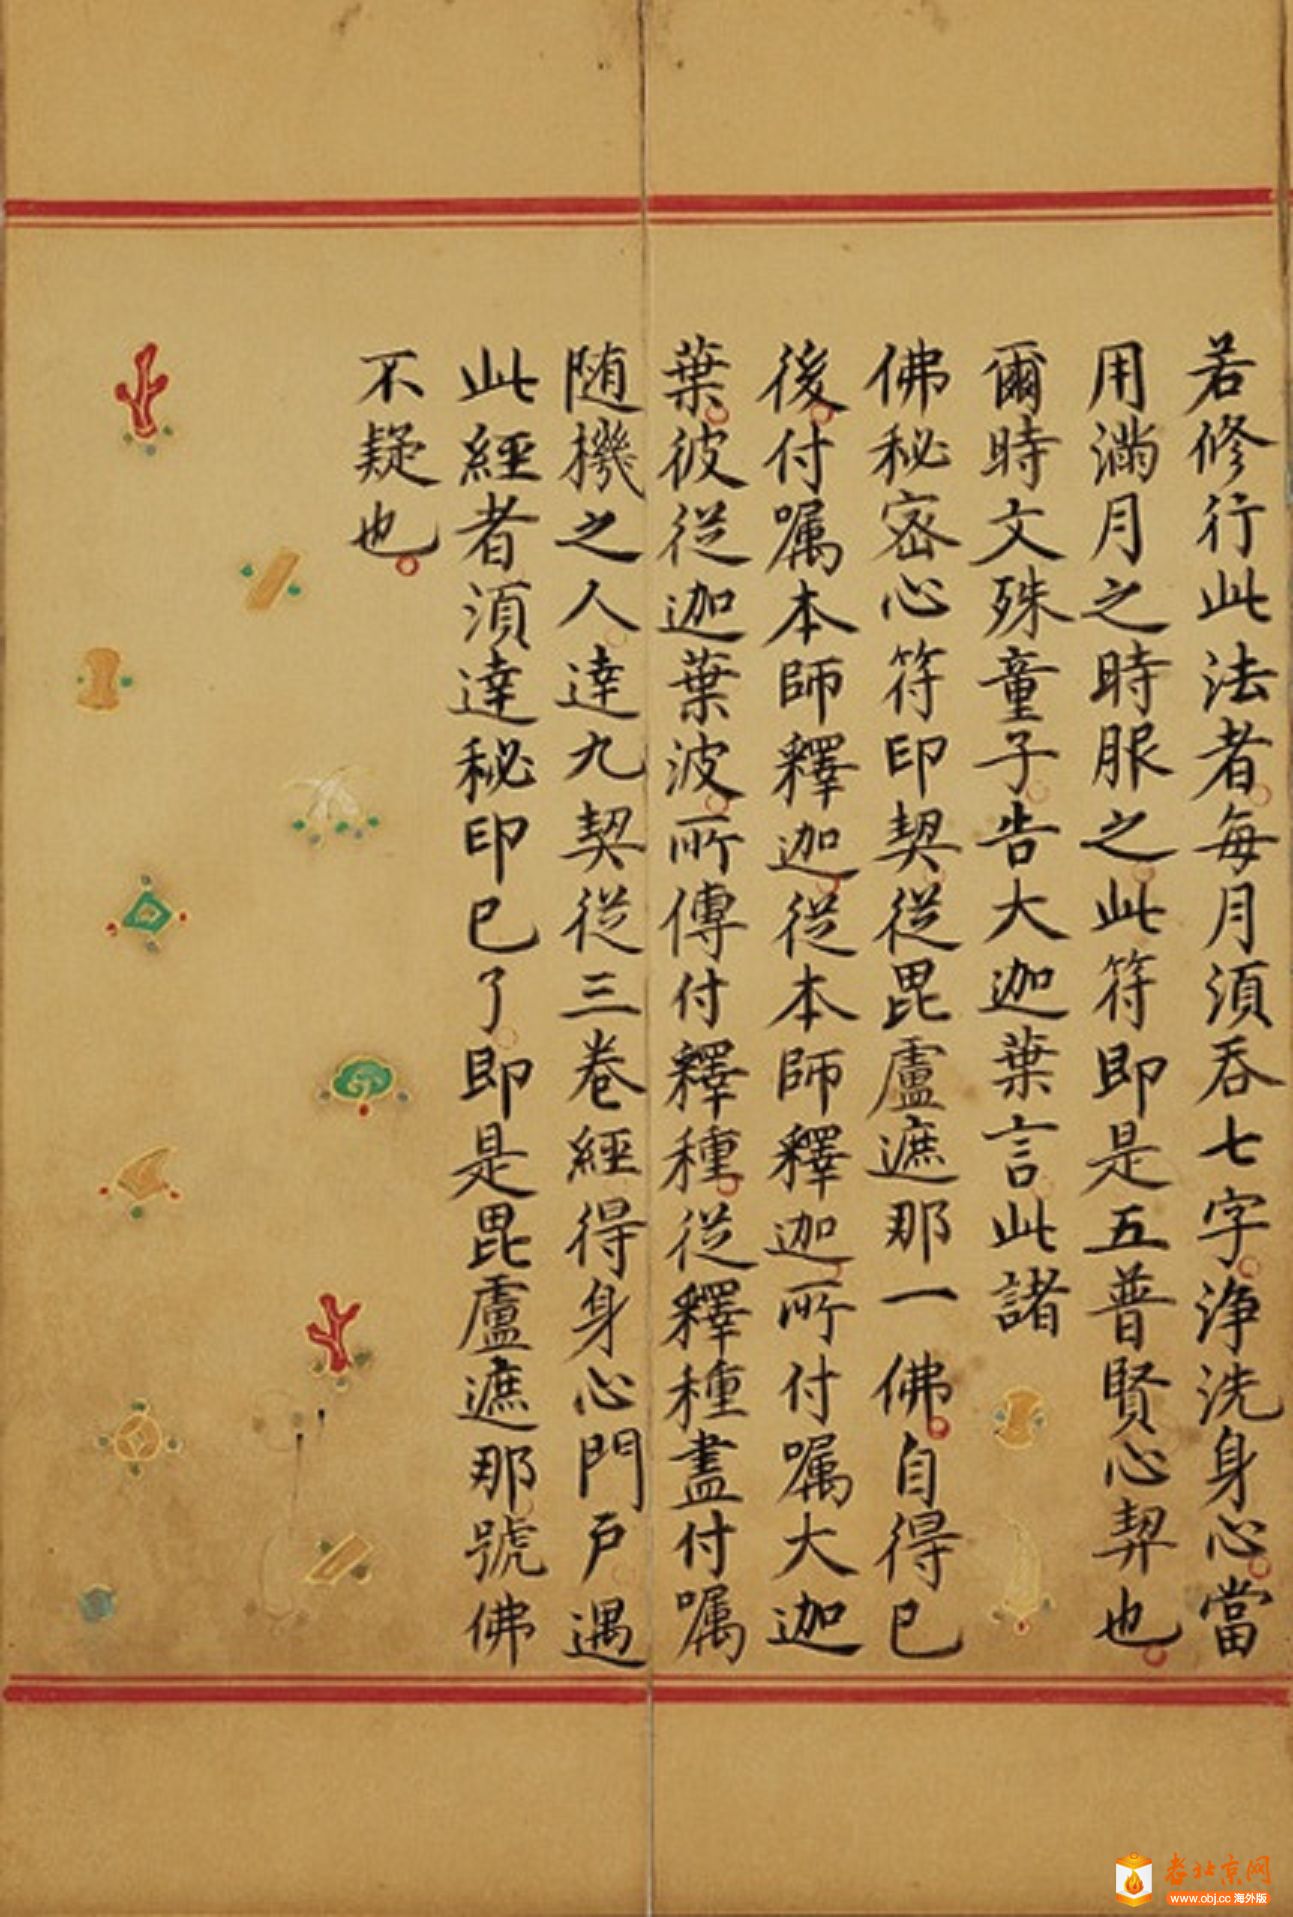 若修行此法者每月須吞七字淨洗身心當
用滿月之時服之此符即是五普賢心契也
爾時文殊童子告大迦葉言此諸
佛秘密心符印契從毘盧遮那一佛自得已
後付嘱本師釋迦從本師釋迦所付嘱大迦
葉彼從迦葉波所傳付釋種從釋種盡付嘱
随機之人達九契從三卷經得身心門戶遇
此經者須達秘印已了即是毘盧遮那號佛
不疑也
老北京网
www.obj.cc 海外版